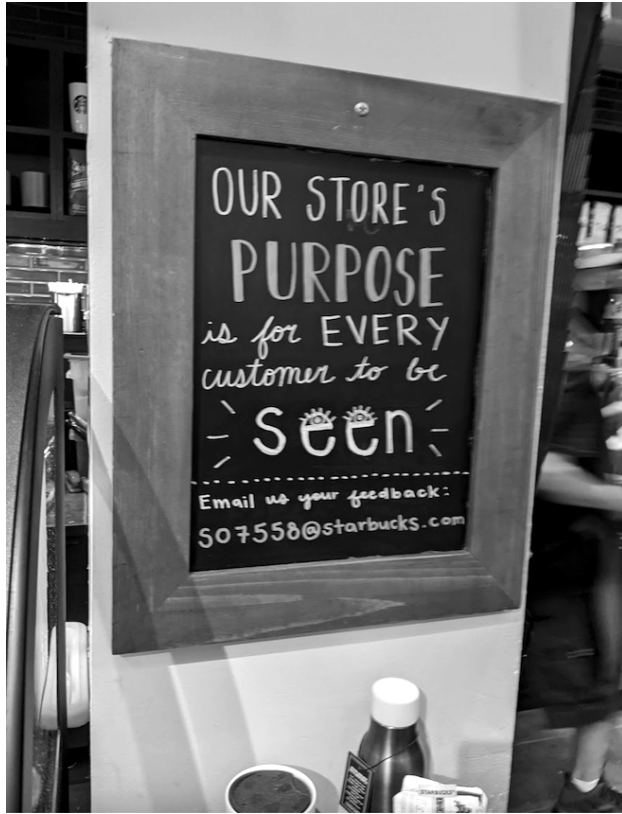 OUR STORE'S
PURPOSE
is for EVERY
customer to be
seen
Email us your feedback:
S07558@starbucks.com
STARBUCKS